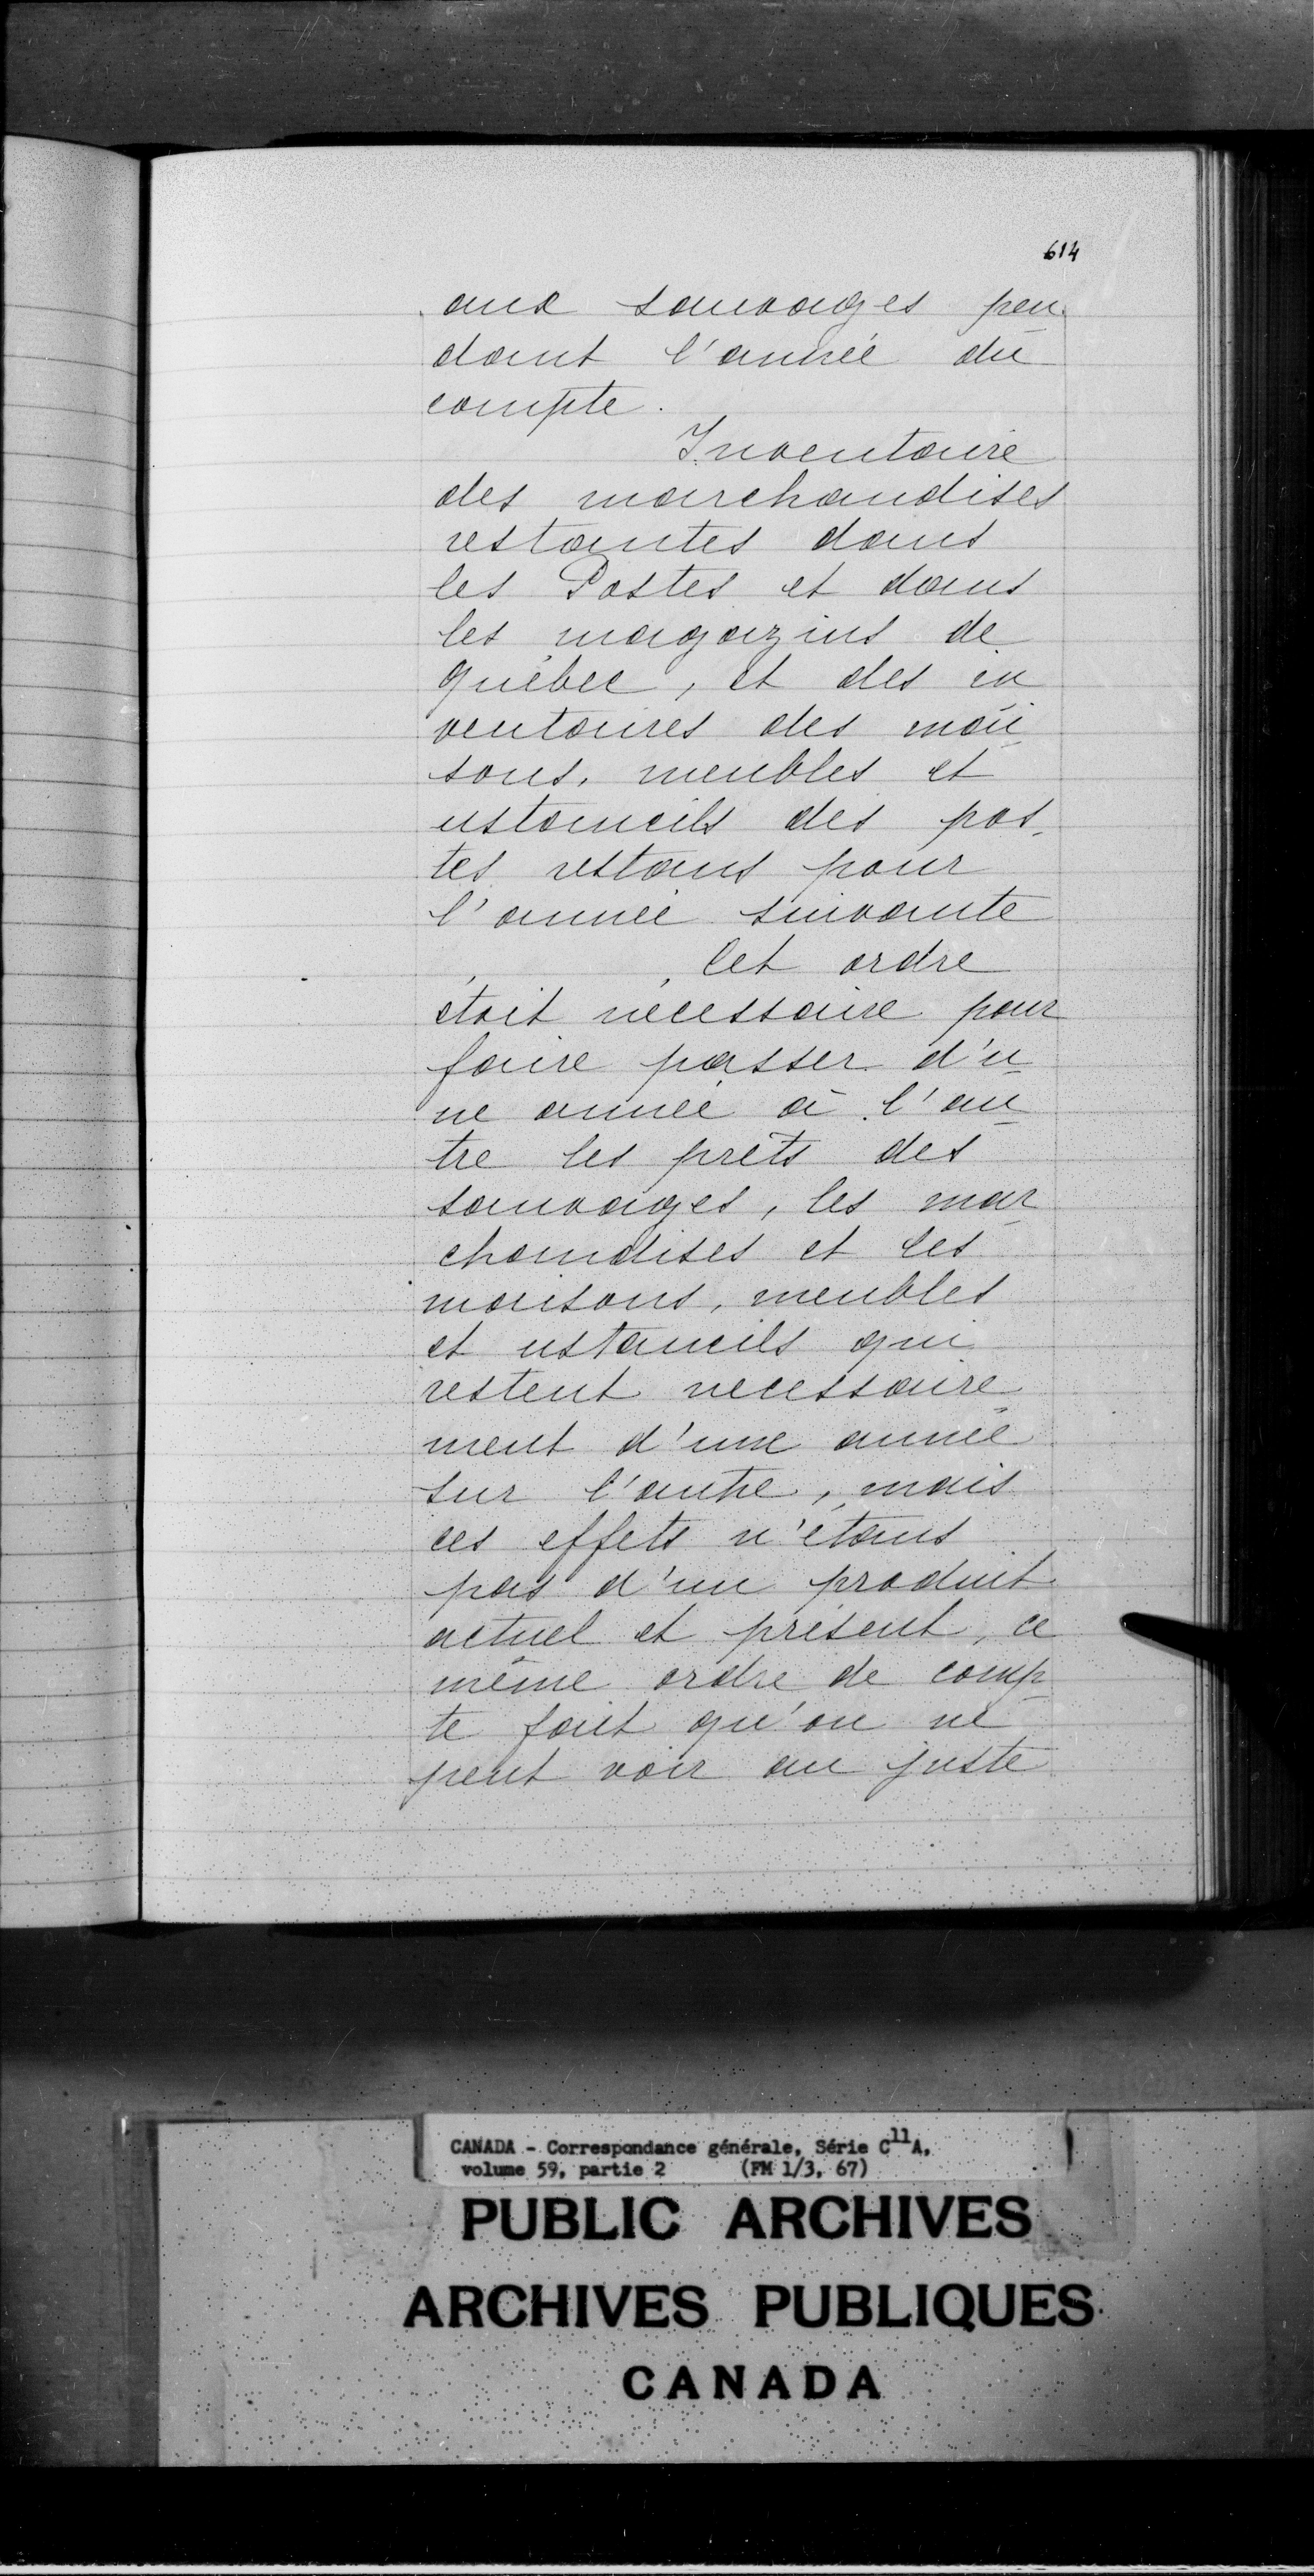 614
aux sauvages pen
dant l'année du
compte.
Inventaire
des marchandises
restantes dans
les Postes et dans
les magazins de
Québec, et des in
ventaires des mai
sons, meubles et
ustancils des pos
tes restans pour
l'année suivante
Cet ordre
étoit nécessaire pour
faire passer d'u
ne année à l'au
tre les prêts des
sauvages, les mar
chandises et les
maisons, meubles
et ustancils qui
restent necessaire
ment d'une année
sur l'autre, mais
ces effets n'étans
pas d'un produit
actuel et présent, ce
même ordre de comp
te fait qu'on ne
peut voir au juste
CANADA - Correspondance générale, Série C11A,
volume 59, partie 2 (FM 1/3, 67)
PUBLIC ARCHIVES
ARCHIVES PUBLIQUES
CANADA